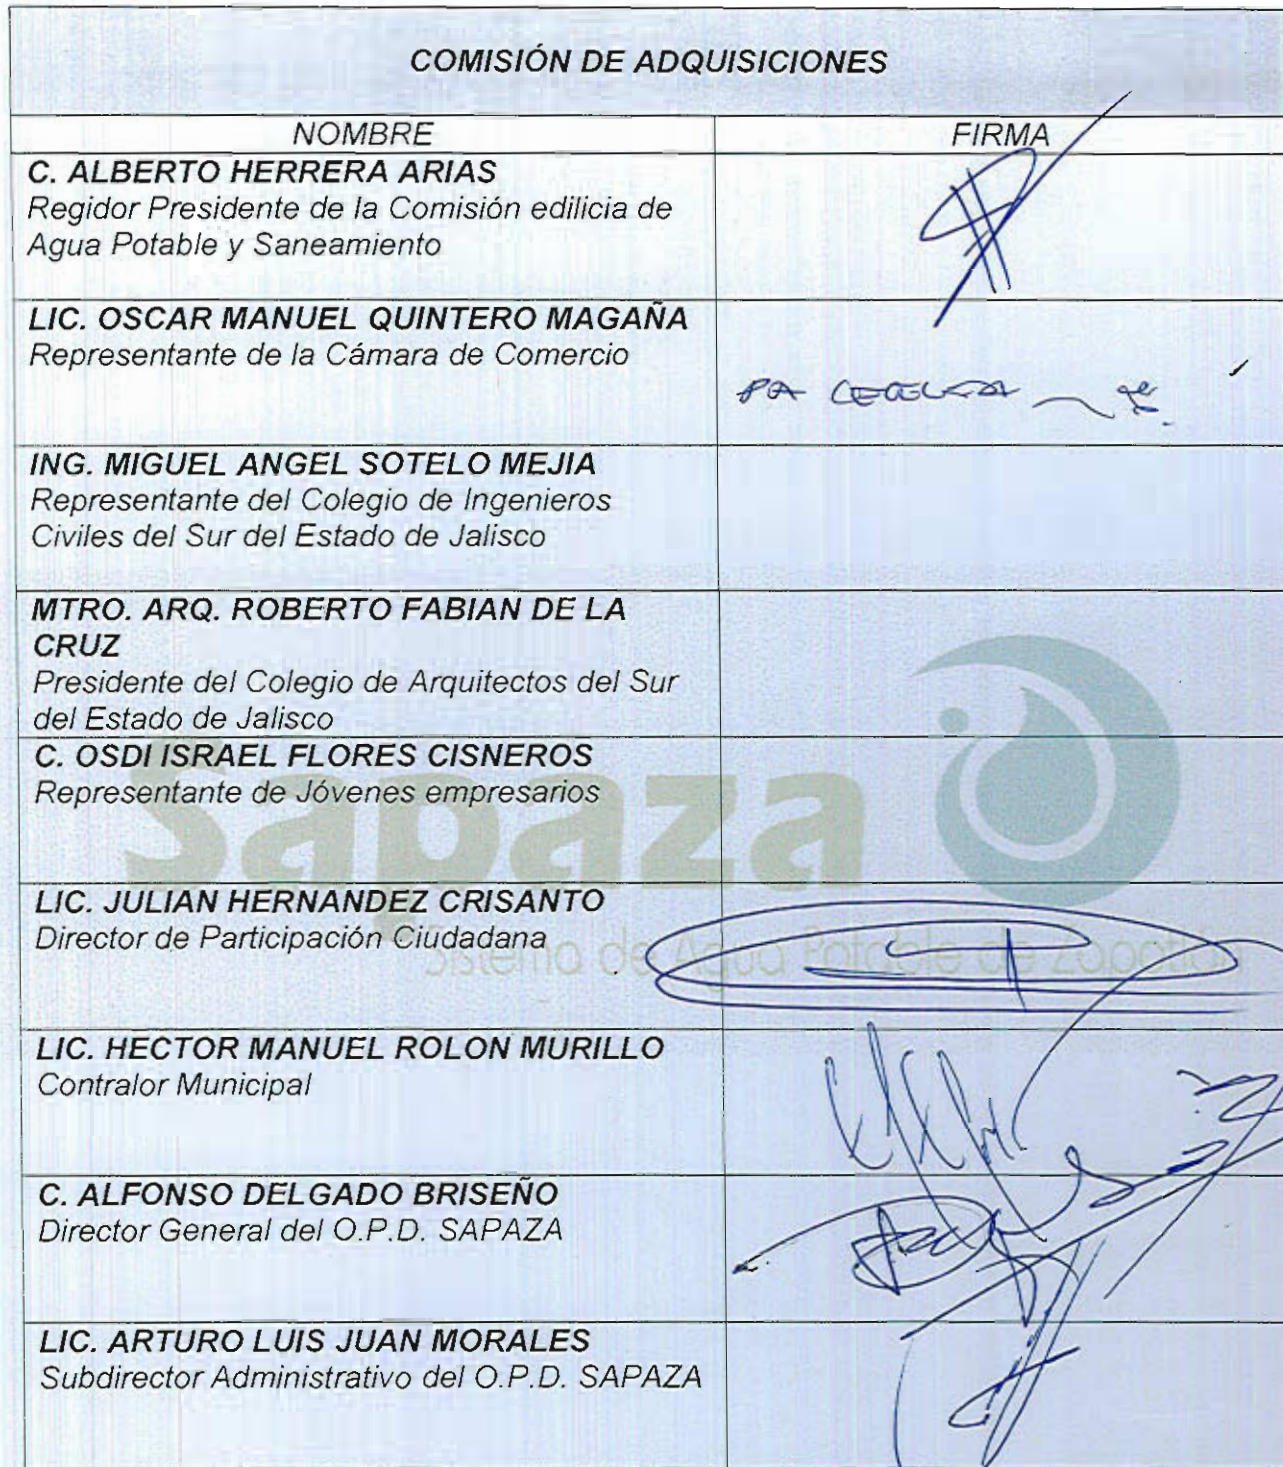 COMISIÓN DE ADQUISICIONES
NOMBRE FIRMA
C. ALBERTO HERRERA ARIAS
Regidor Presidente de la Comisión edilicia de
Agua Potable y Saneamiento
LIC. OSCAR MANUEL QUINTERO MAGAÑA
Representante de la Cámara de Comercio
ING. MIGUEL ANGEL SOTELO MEJIA
Representante del Colegio de Ingenieros
Civiles del Sur del Estado de Jalisco
MTRO. ARQ. ROBERTO FABIAN DE LA
CRUZ
Presidente del Colegio de Arquitectos del Sur
del Estado de Jalisco
C. OSDI ISRAEL FLORES CISNEROS
Representante de Jóvenes empresarios
Sapaza
LIC. JULIAN HERNANDEZ CRISANTO
Director de Participación Ciudadana
Sistema de Agua Potable de Zapotlán
LIC. HECTOR MANUEL ROLON MURILLO
Contralor Municipal
C. ALFONSO DELGADO BRISEÑO
Director General del O.P.D. SAPAZA
LIC. ARTURO LUIS JUAN MORALES
Subdirector Administrativo del O.P.D. SAPAZA